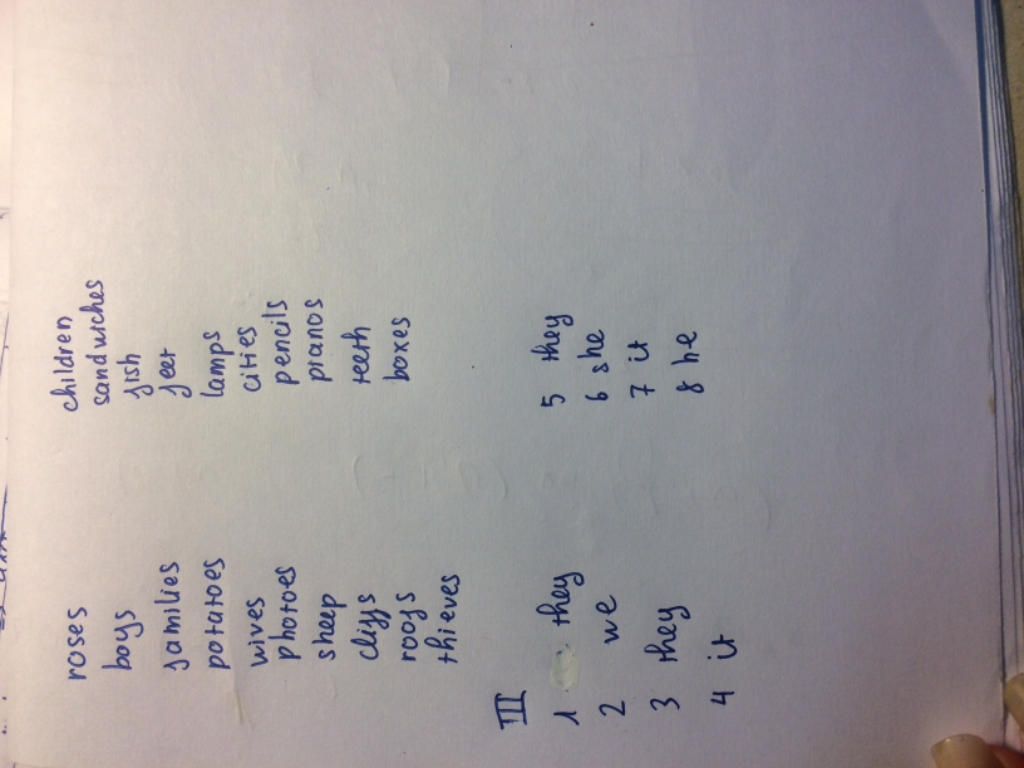 roses
boys
families
potatoes
wives
photoes
sheep
cliffs
roofs
thieves
children
sandwiches
fish
feet
lamps
cities
pencils
pianos
teeth
boxes
III
1 they
2 we
3 they
4 it
5 they
6 she
7 it
8 he